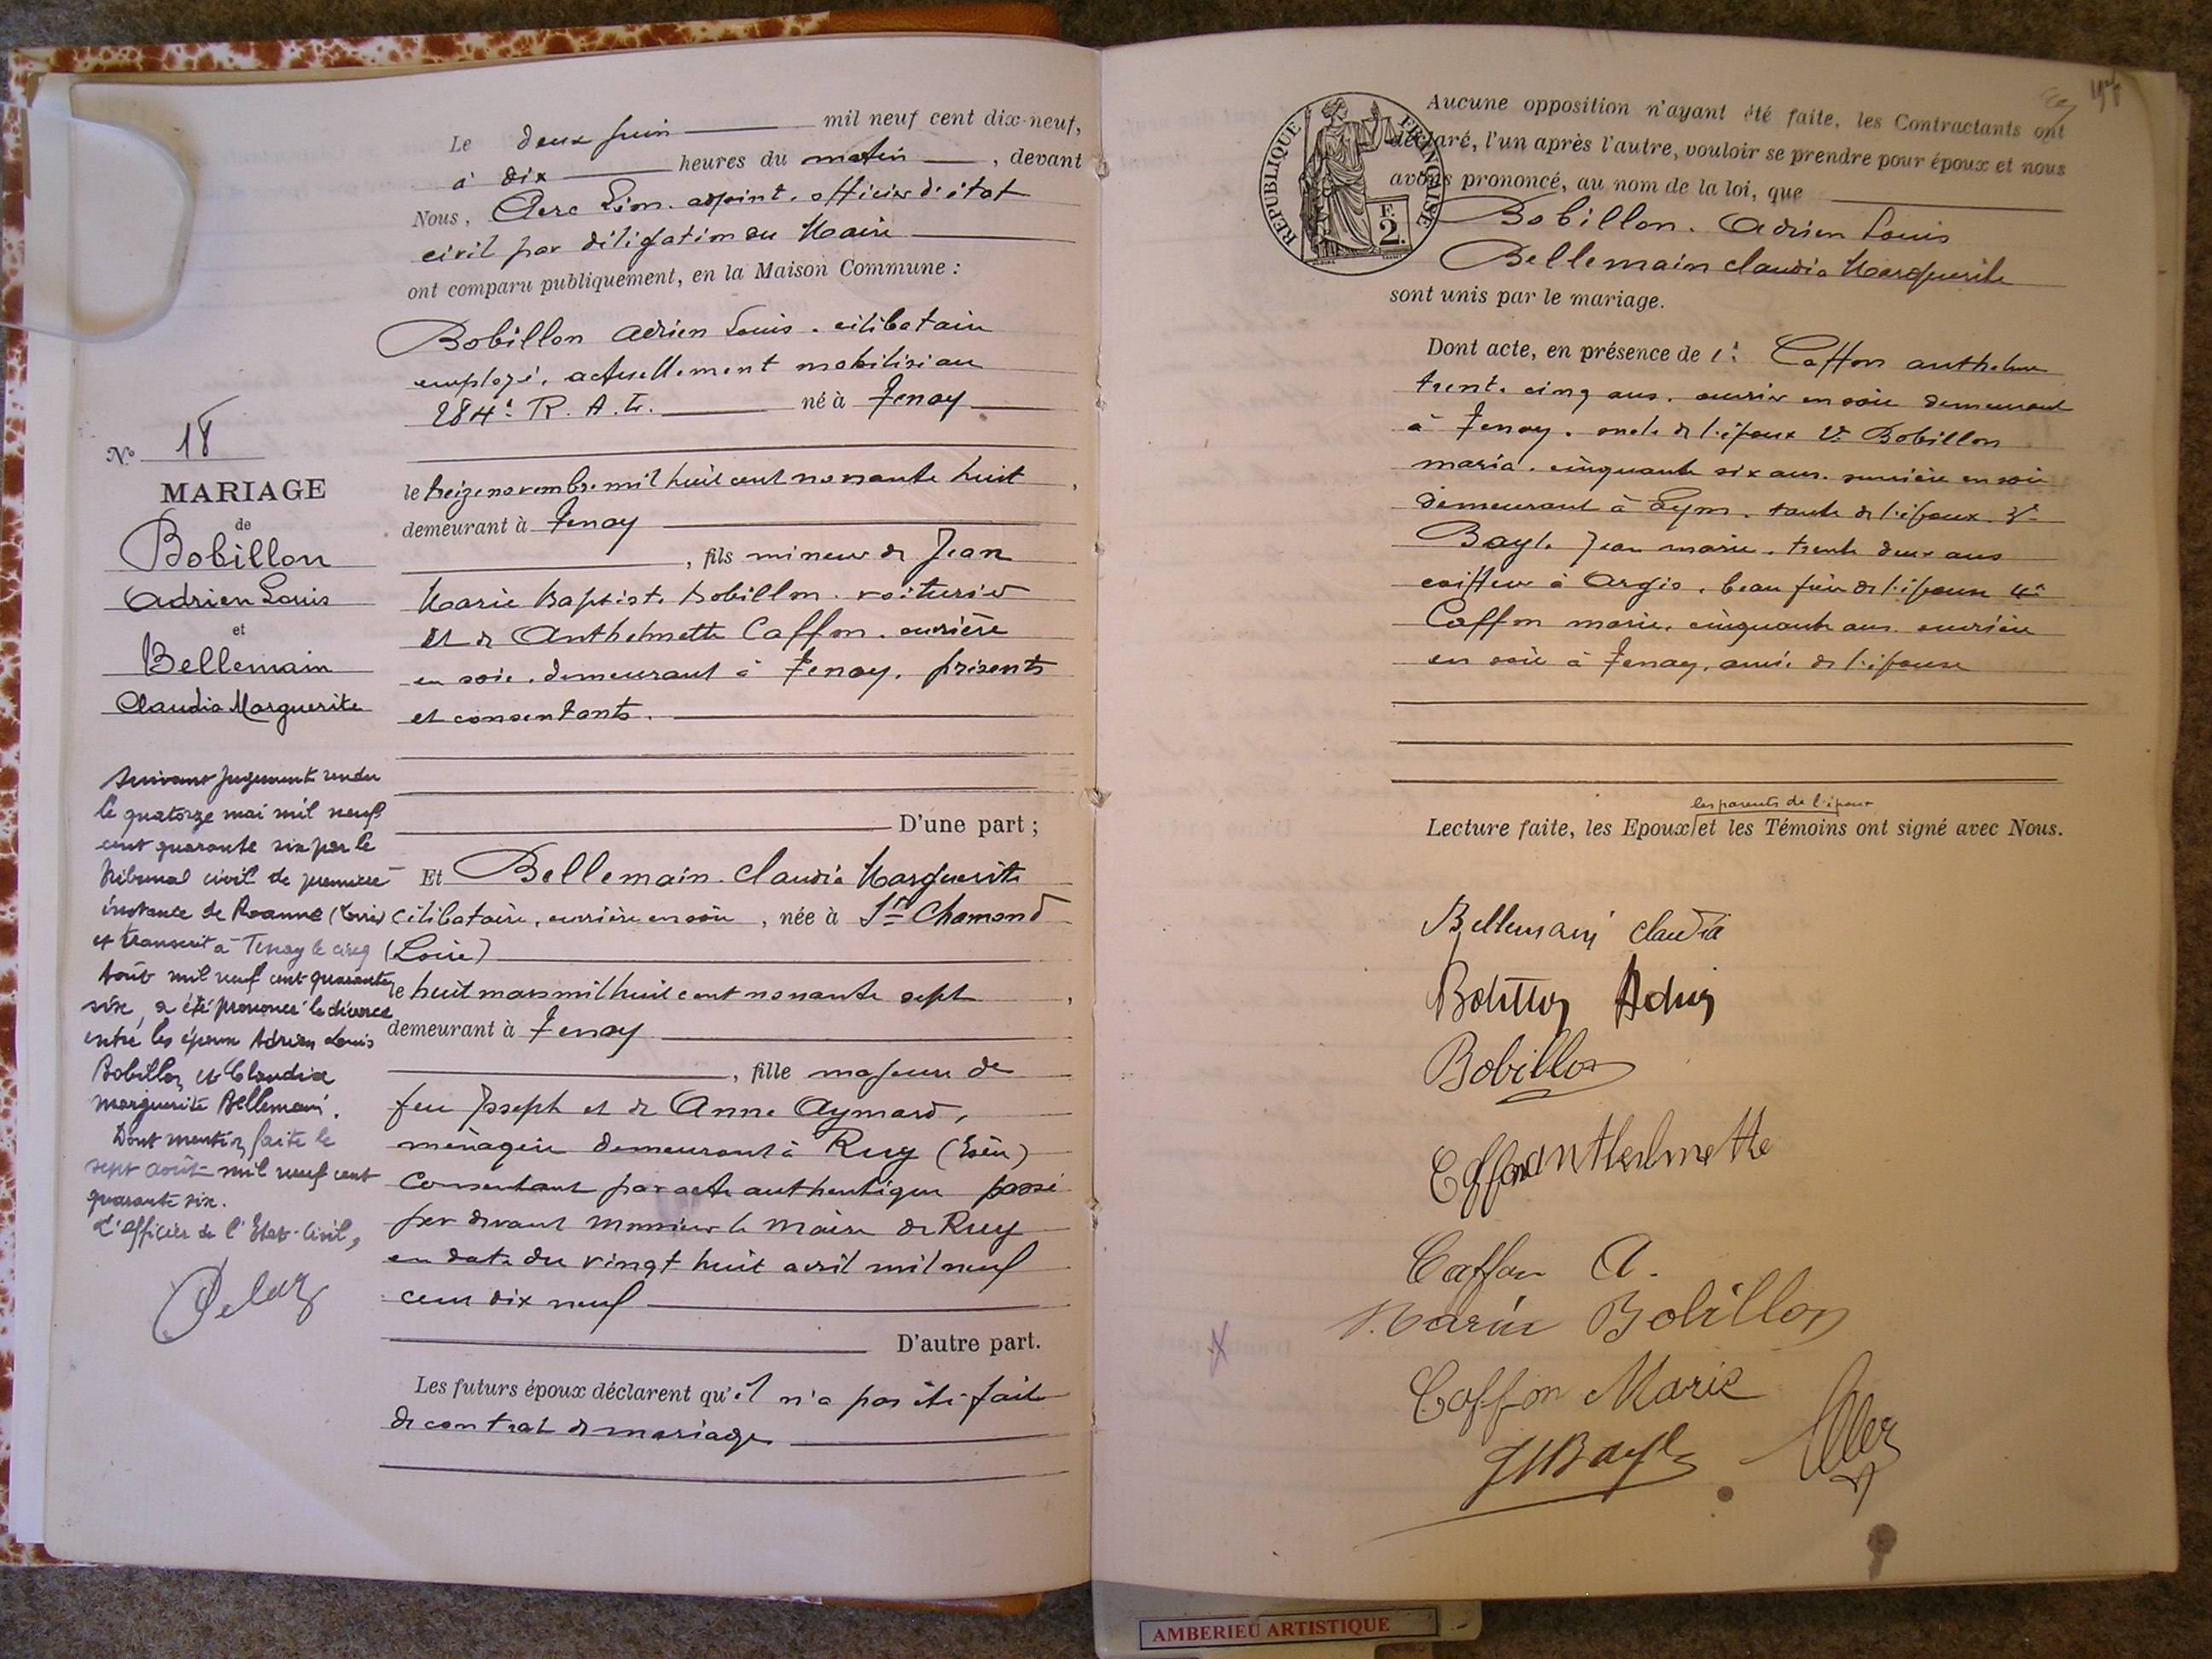 Le deux juin mil neuf cent dix-neuf,
à dix heures du matin, devant
Nous, Léon. adjoint. officier d'état
civil par délégation du Maire
ont comparu publiquement, en la Maison Commune :
Bobillon Adrien Louis. célibataire
employé, actuellement mobilisé au
284e R. A. L. né à Tenay
le treize novembre mil huit cent nonante huit,
demeurant à Tenay
, fils mineur de Jean
Marie Baptiste Bobillon. voiturier
et de Anthelmette Caffon. ouvrière
en soie. demeurant à Tenay. présents
et consentants.
D'une part ;
Et Bellemain. Claudia Marguerite
célibataire, ouvrière en soie, née à St Chamond
(Loire)
le huit mars mil huit cent nonante sept,
demeurant à Tenay
, fille majeure de
feu Joseph et de Anne Aymard,
ménagère demeurant à Ruy (Isère)
Consentant par acte authentique passé
par devant Monsieur le Maire de Ruy
en date du vingt huit avril mil neuf
cent dix neuf
D'autre part.
Les futurs époux déclarent qu'il n'a pas été fait
de contrat de mariage
No 18
MARIAGE
de
Bobillon
Adrien Louis
et
Bellemain
Claudia Marguerite
Suivant jugement rendu
le quatorze mai mil neuf
cent quarante six par le
tribunal civil de première
instance de Roanne (Loire)
et transcrit à Tenay le cinq
Août mil neuf cent quarante
six, a été prononcé le divorce
entre les époux Adrien Louis
Bobillon et Claudia
Marguerite Bellemain.
Dont mention faite le
sept août mil neuf cent
quarante six.
L'officier de l'Etat-Civil,
REPUBLIQUE FRANÇAISE
F.
2.
Aucune opposition n'ayant été faite, les Contractants ont
déclaré, l'un après l'autre, vouloir se prendre pour époux et nous
avons prononcé, au nom de la loi, que
Bobillon. Adrien Louis
Bellemain Claudia Marguerite
sont unis par le mariage.
Dont acte, en présence de 1° Caffon Anthelme
trente cinq ans. ouvrier en soie demeurant
à Tenay. oncle de l'époux 2° Bobillon
Maria. cinquante six ans. ouvrière en soie
demeurant à Lyon. tante de l'époux. 3°
Bayle Jean Marie. trente deux ans
coiffeur à Argis. beau frère de l'épouse 4°
Caffon Marie. cinquante ans. ouvrière
en soie à Tenay. amie de l'épouse
les parents de l'époux
Lecture faite, les Epoux et les Témoins ont signé avec Nous.
Bellemain Claudia
Bobillon Adrien
Bobillon
Caffon Anthelmette
Caffon A.
Maria Bobillon
Caffon Marie
JM Bayle
AMBERIEU ARTISTIQUE